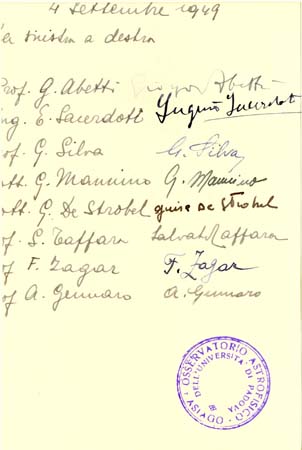 4 settembre 1949
da sinistra a destra
Prof. G. Abetti Giorgio Abetti
Ing. E. Sacerdoti Eugenio Sacerdoti
Prof G. Silva G. Silva
Dott. G. Mannino G. Mannino
Dott. G. De Strobel Giusa De Strobel
Prof. S. Taffara Salvat Taffara
Prof F. Zagar F. Zagar
Prof A. Gennaro A. Gennaro
OSSERVATORIO ASTROFISICO
DELL'UNIVERSITÀ DI PADOVA
ASIAGO